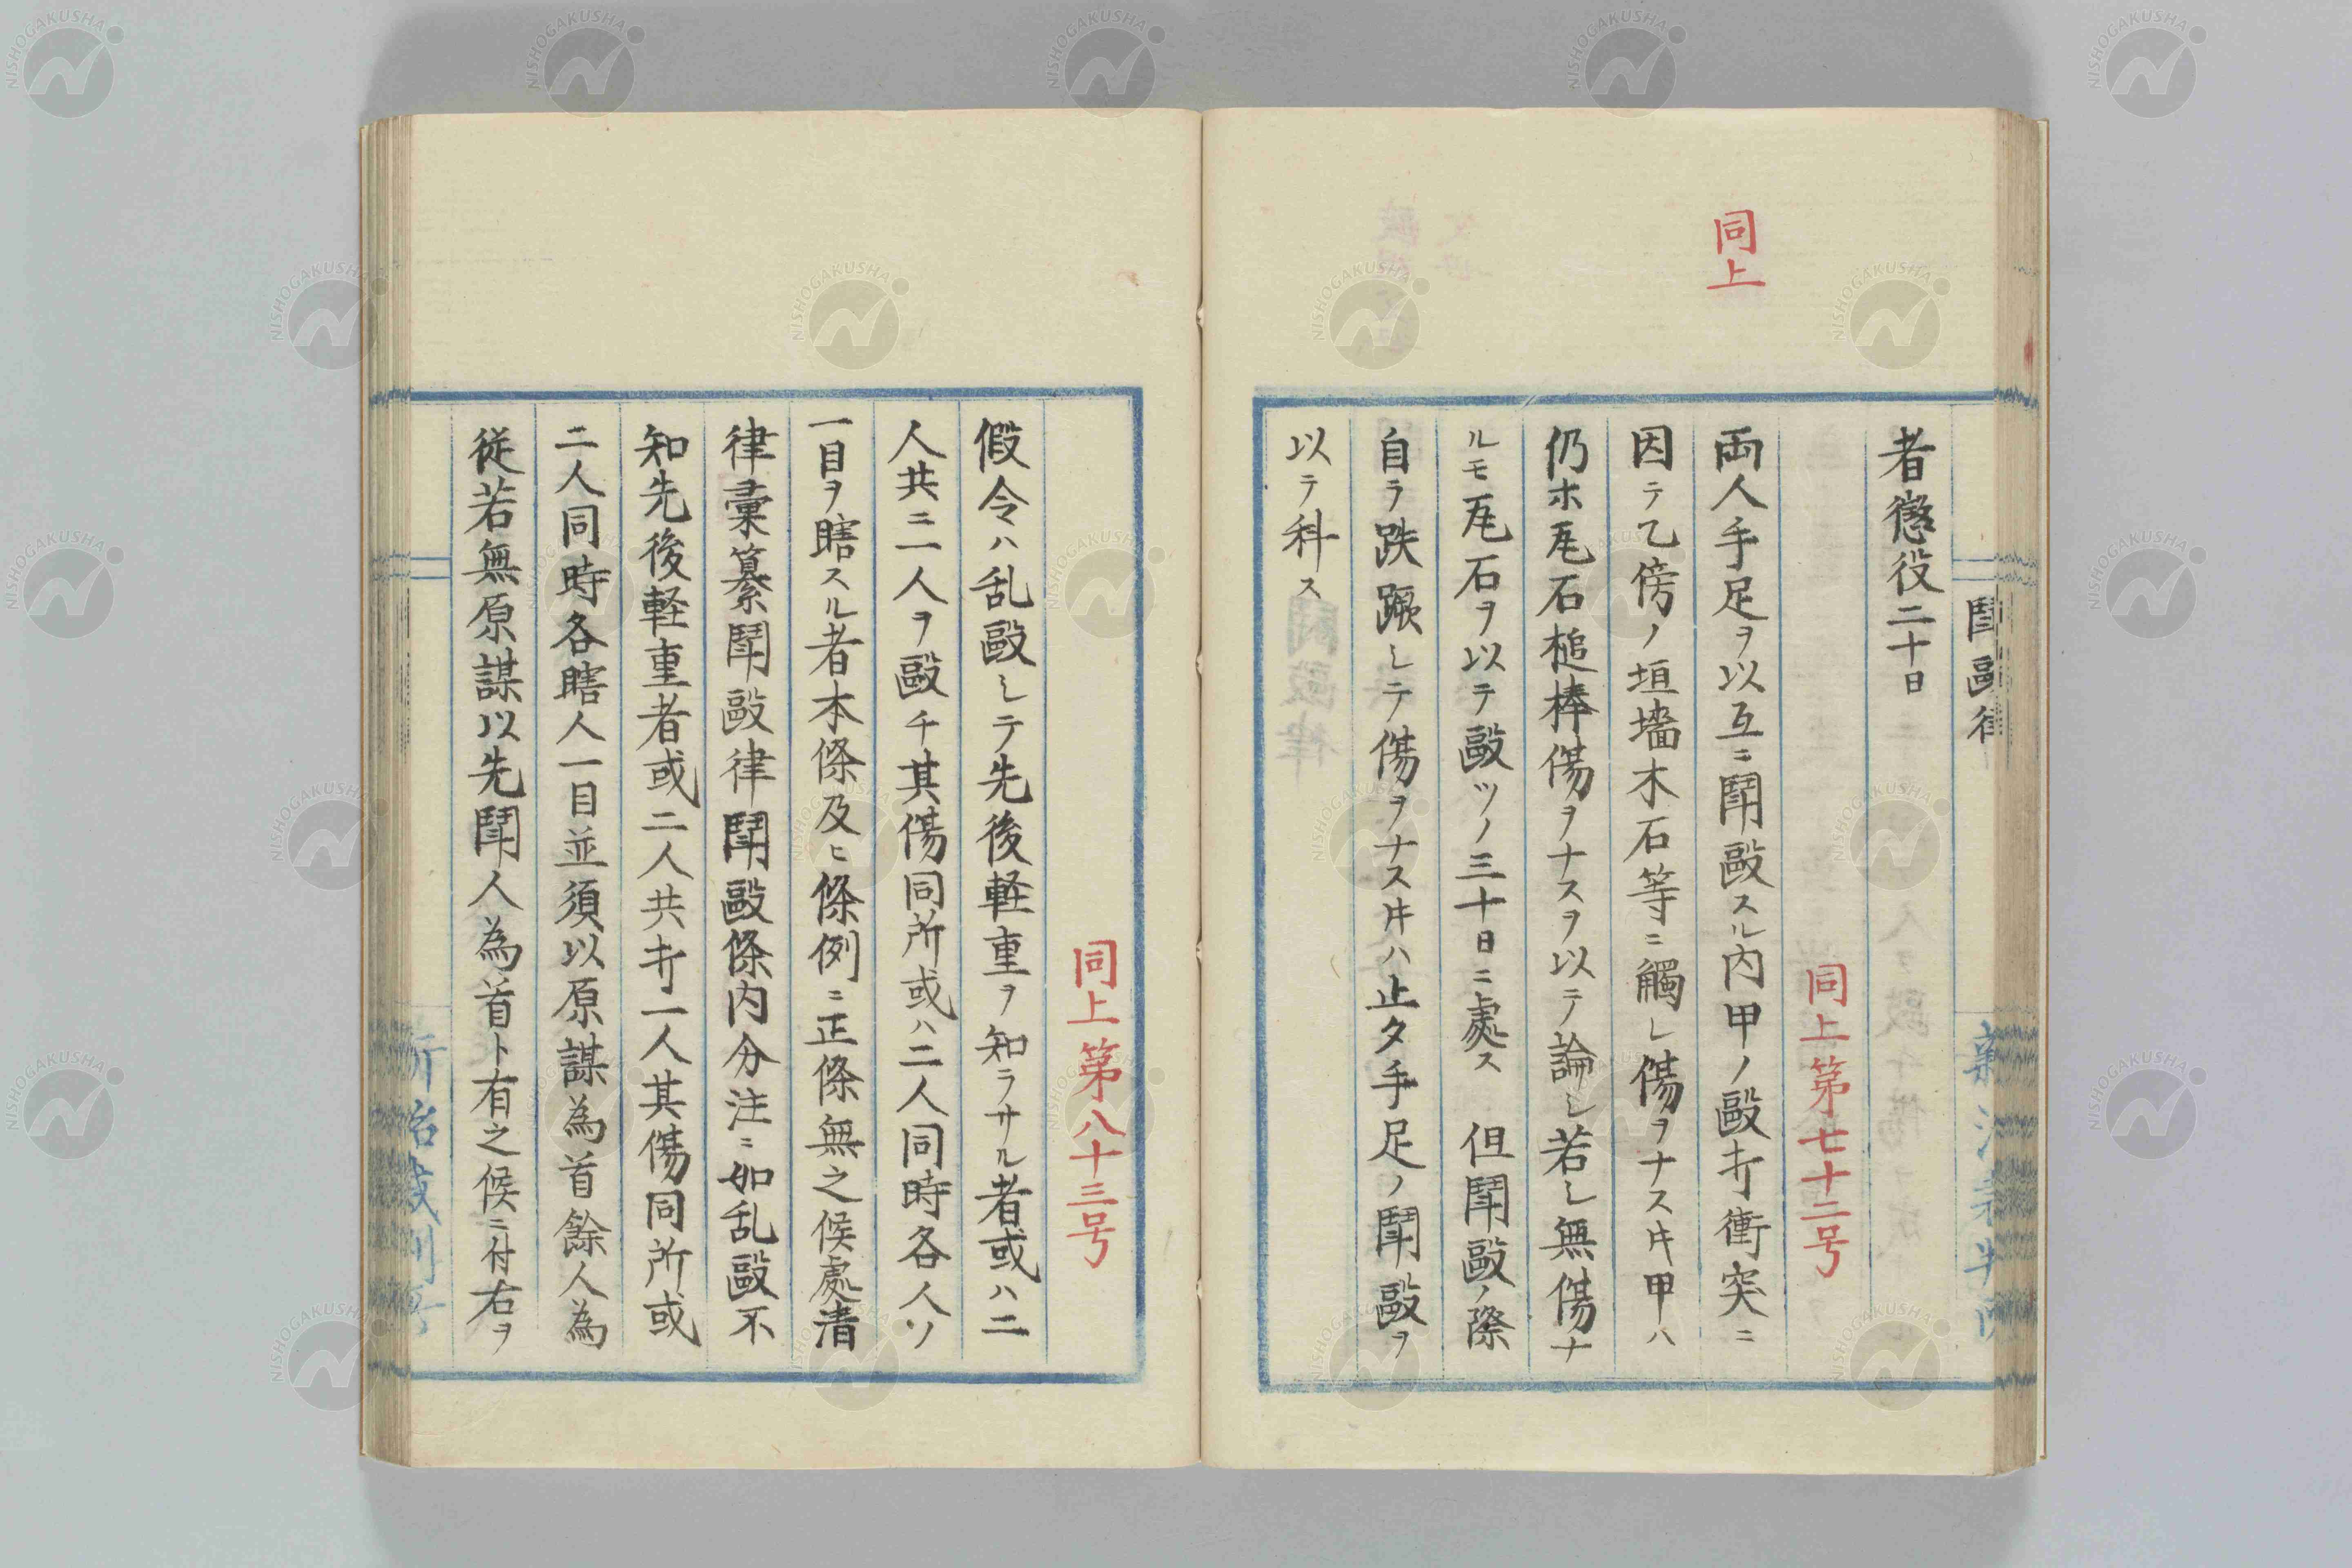 同上
鬪毆律
者懲役二十日
同上第七十二号
両人手足ヲ以互ニ鬪毆スル内甲ノ毆打衝突ニ
因テ乙傍ノ垣墻木石等ニ觸レ傷ヲナスヰ甲ハ
仍ホ瓦石槌棒傷ヲナスヲ以テ論シ若シ無傷ナ
ルモ瓦石ヲ以テ毆ツノ三十日ニ處ス 但鬪毆ノ際
自ラ跌蹶シテ傷ヲナスヰハ止タ手足ノ鬪毆ヲ
以テ科ス
同上第八十三号
假令ハ乱毆シテ先後軽重ヲ知ラサル者或ハ二
人共ニ一人ヲ毆チ其傷同所或ハ二人同時各人ソ
一目ヲ瞎スル者本條及ヒ條例ニ正條無之候處清
律彙纂鬪毆律鬪毆條内分注ニ如乱毆不
知先後軽重者或二人共打一人其傷同所或
二人同時各瞎人一目並須以原謀為首餘人為
従若無原謀以先鬪人為首ト有之候ニ付右ヲ
NISHOGAKUSHA